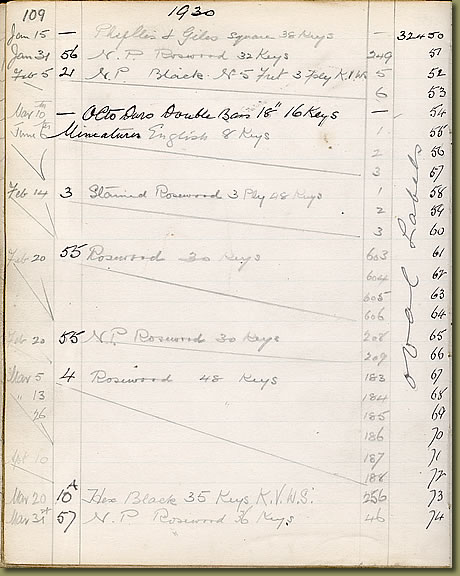 109 1930
Jan 15 — & Giles square 38 Keys — 32450
Jan 31 56 N.P. Rosewood 32 Keys 249 51
Feb 5 21 N.P. Black N 5 Fret 3 Ply 5 52
6 53
Mar 10th — Octo Duro Double Bass 18" 16 Keys — 54
June 6th Miniatures English 8 Keys 1 55
2 56
3 57
Feb 14 3 Stained Rosewood 3 Ply 48 Keys 1 58
2 59
3 60
Feb 20 55 Rosewood 30 Keys 603 61
604 62
605 63
606 64
Feb 20 55 N.P. Rosewood 30 Keys 208 65
209 66
Mar 5 4 Rosewood 48 Keys 183 67
" 13 184 68
26 185 69
186 70
10 187 71
188 72
Mar 20 10A Hex Black 35 Keys K.V.N.S. 256 73
Mar 31st 57 N.P. Rosewood 36 Keys 46 74
Oval Labels